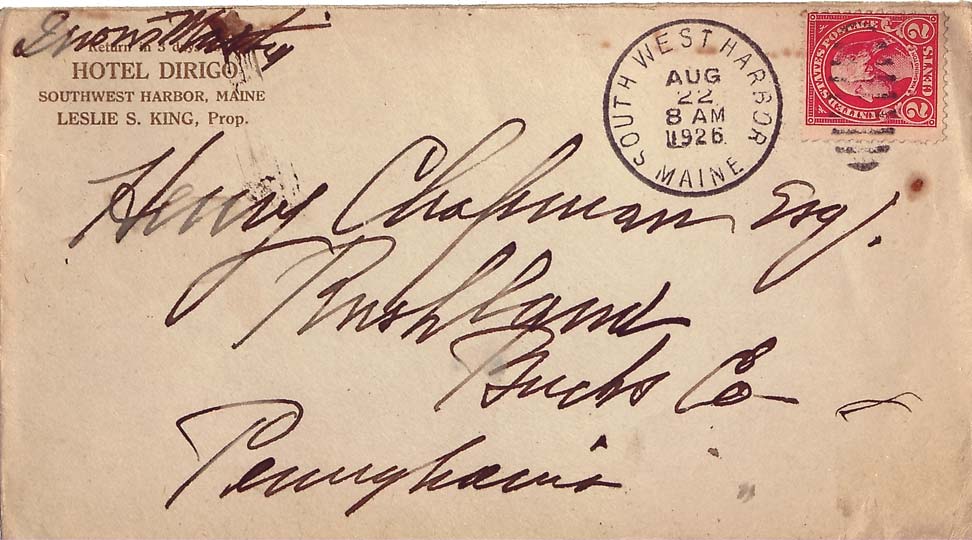 Return in 5 days
HOTEL DIRIGO
SOUTHWEST HARBOR, MAINE
LESLIE S. KING, Prop.
SOUTHWEST HARBOR
AUG
22
8 AM
1926
MAINE
UNITED STATES POSTAGE
2 CENTS 2
Henry Chapman Esq.
Rushland
Bucks Co
Pennsylvania